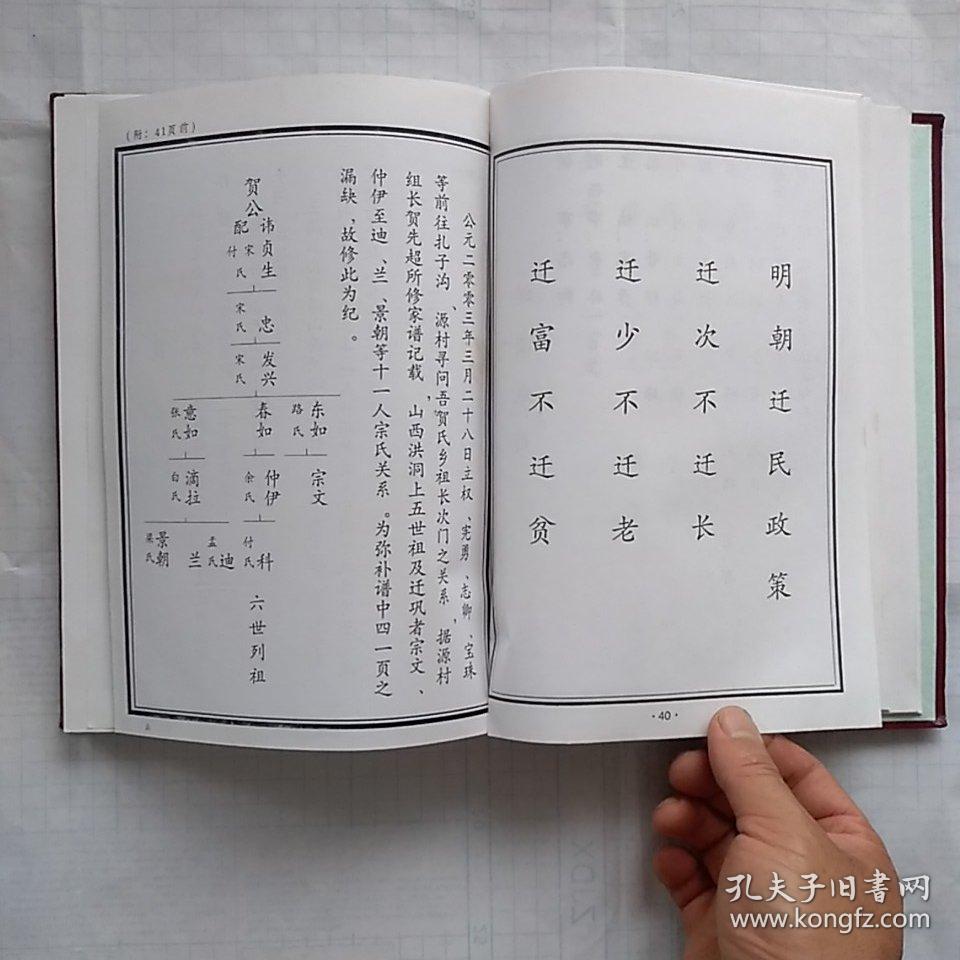 明朝迁民政策
迁次不迁长
迁少不迁老
迁富不迁贫
·40·
（附：41页前）
公元二零零三年三月二十八日立权、宪勇、志卿、宝珠
等前往扎子沟、源村寻问吾贺氏乡祖长次门之关系，据源村
组长贺先超所修家谱记载，山西洪洞上五世祖及迁巩者宗文、
仲伊至迪、兰、景朝等十一人宗氏关系。为弥补谱中四一页之
漏缺，故修此为纪。
贺公
讳贞生
配
宋氏
付
忠
宋氏
发兴
宋氏
东如
路氏
春如
意如
张氏
宗文
仲伊
余氏
滴拉
白氏
科
付氏
迪
孟氏
兰
景朝
梁氏
六世列祖
孔夫子旧书网
www.kongfz.com